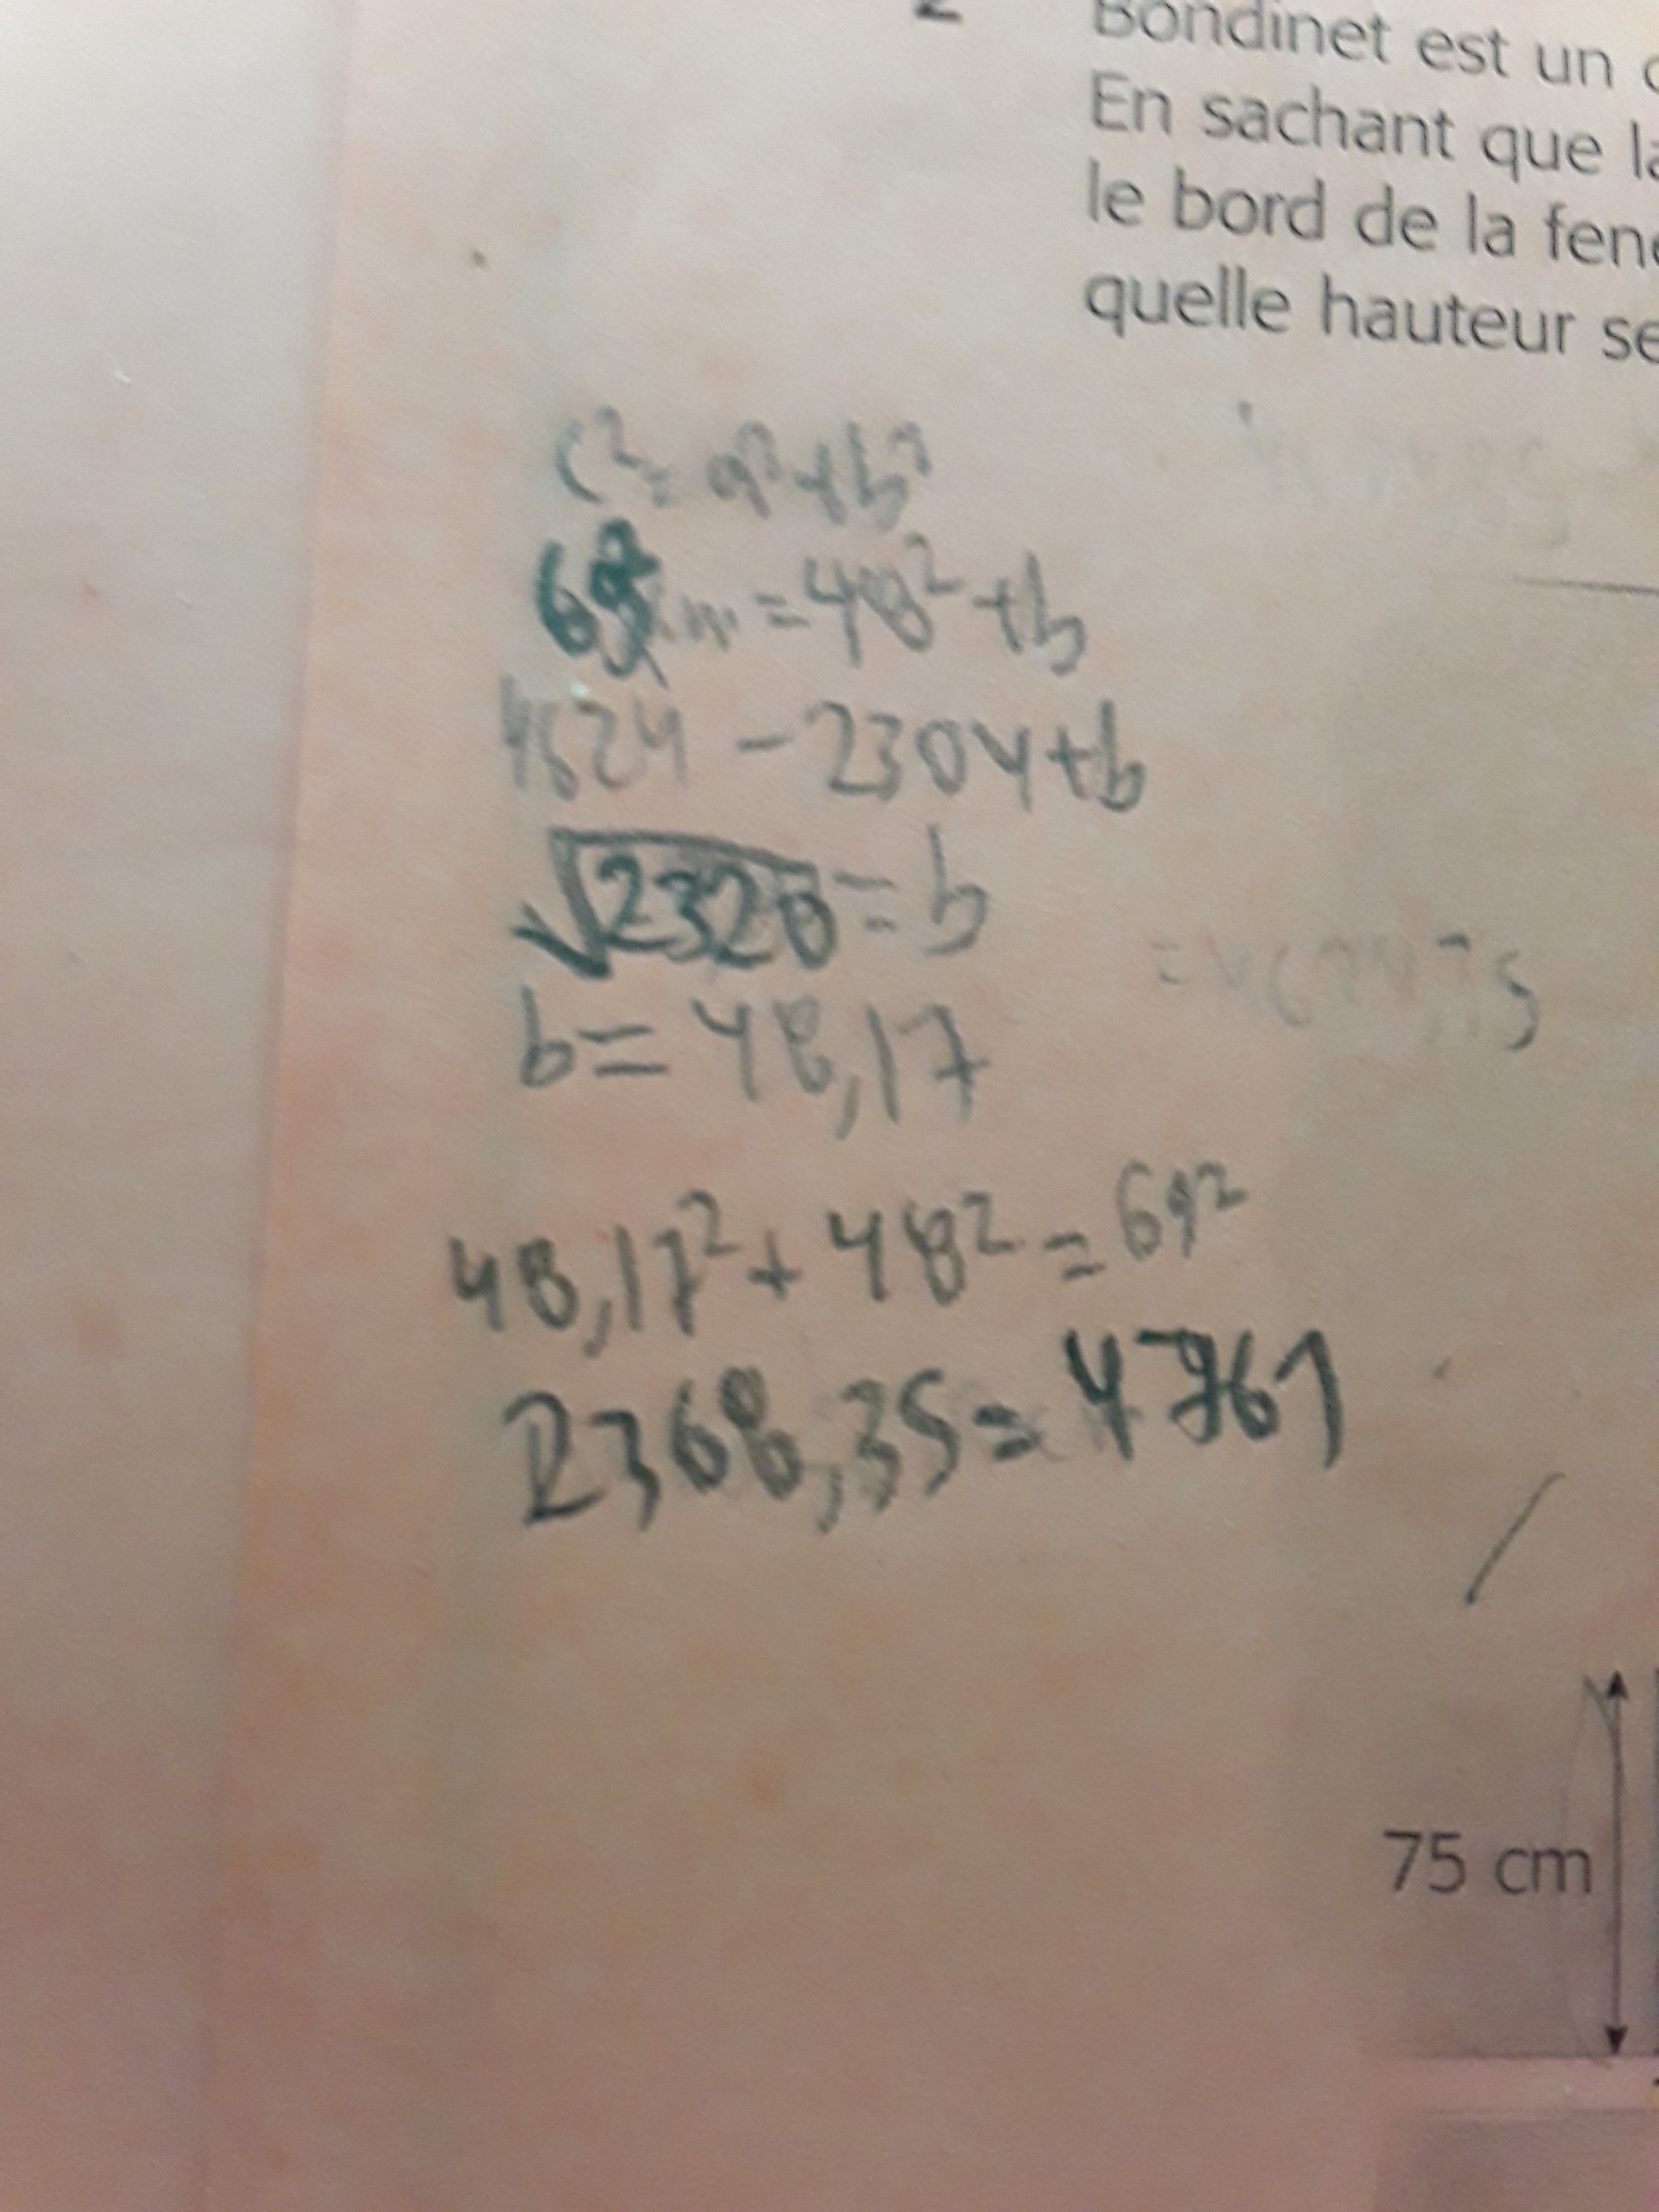 Bondinet est un
En sachant que la
le bord de la fen
quelle hauteur se
c²=a²+b²
68 cm=48²+b
4624 - 2304+b
√2320=b
b=48,17
48,17²+48²=69²
2368,35=4761
75 cm